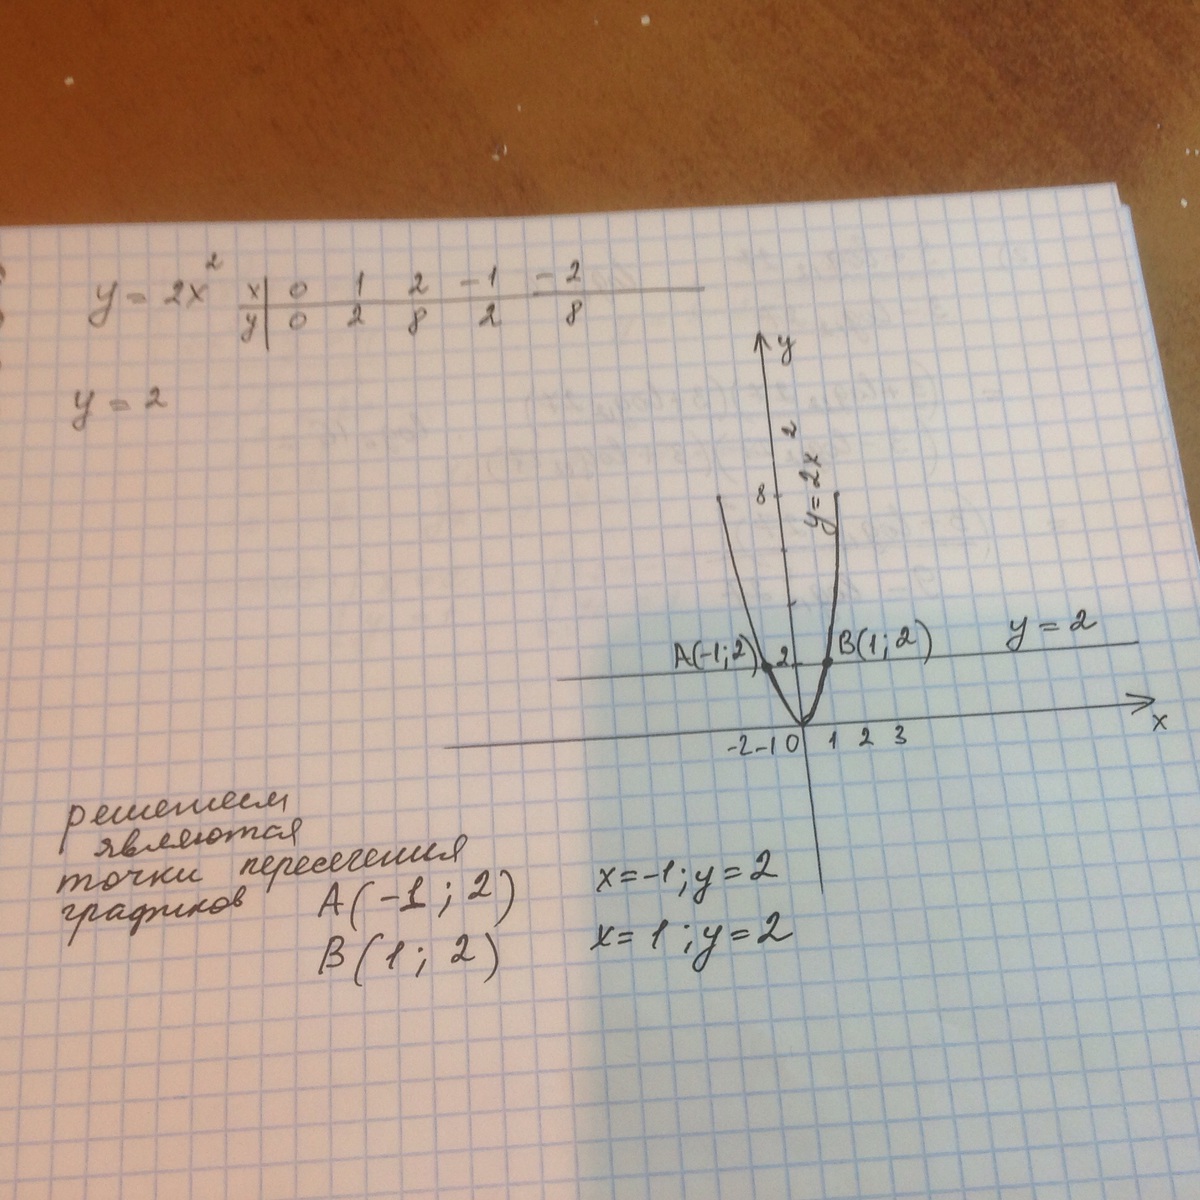 y = 2x²
x | 0 1 2 -1 -2
y | 0 2 8 2 8
y = 2
y
y = 2x²
8
A(-1; 2)
2
B(1; 2)
y = 2
x
-2 -1 0 1 2 3
решением
являются
точки пересечения
графиков
A(-1; 2)
B(1; 2)
x=-1; y=2
x=1; y=2